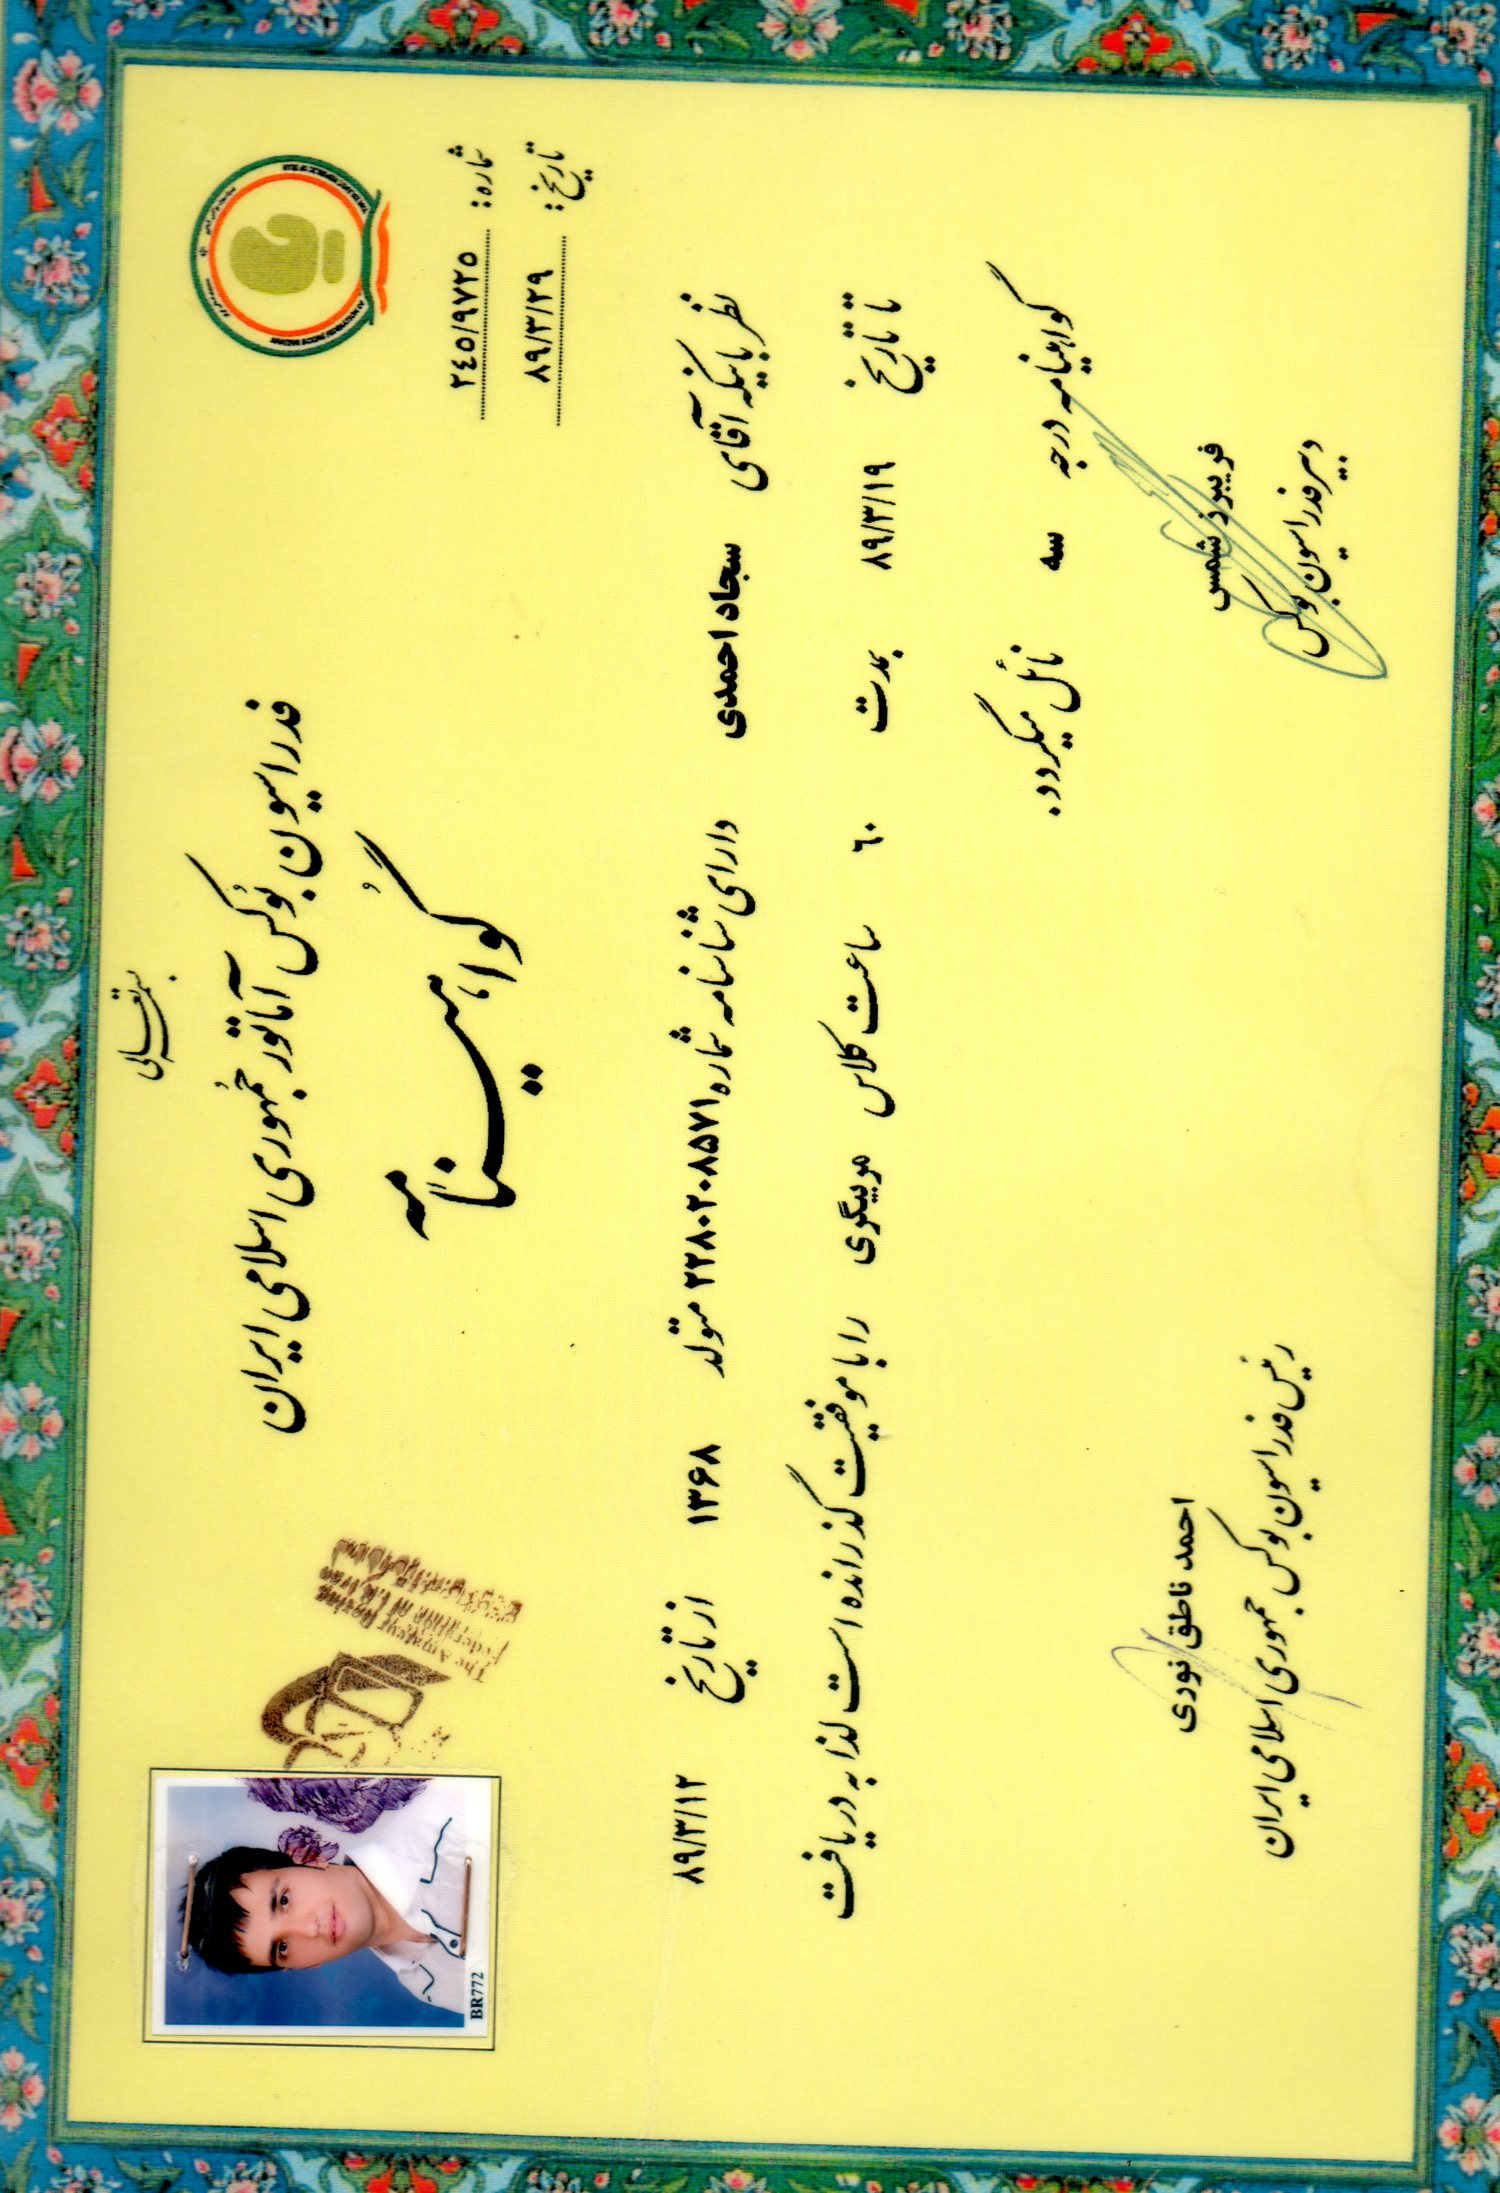 بسمه تعالی
فدراسیون بُوکس آماتور جُمهوری اسلامی ایران
گواهینامه
شماره: ٢٤٥/٩٧٢٥
تاریخ: ٨٩/٣/٢٩
The Amateur Boxing
Federation of I.R.Iran
BR772
نظر باینکه آقای سجاد احمدی دارای شناسنامه شماره ۲۲۸۰۲۰۸۵۷۱ متولد ۱۳۶۸ از تاریخ ۸۹/۳/۱۲
تا تاریخ ۸۹/۳/۱۹ بمدت ٦٠ ساعت کلاس مربیگری را با موفقیت گذرانده است لذا به دریافت
گواهینامه درجه سه نائل میگردد.
فریبرز شمس
دبیر فدراسیون بوکس
احمد ناطق نوری
رئیس فدراسیون بوکس جمهوری اسلامی ایران